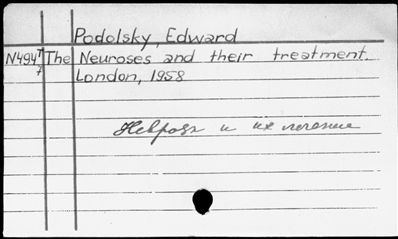 Podolsky, Edward
N494 7/7 The Neuroses and their treatment.
London, 1958
Неврозы и их лечение